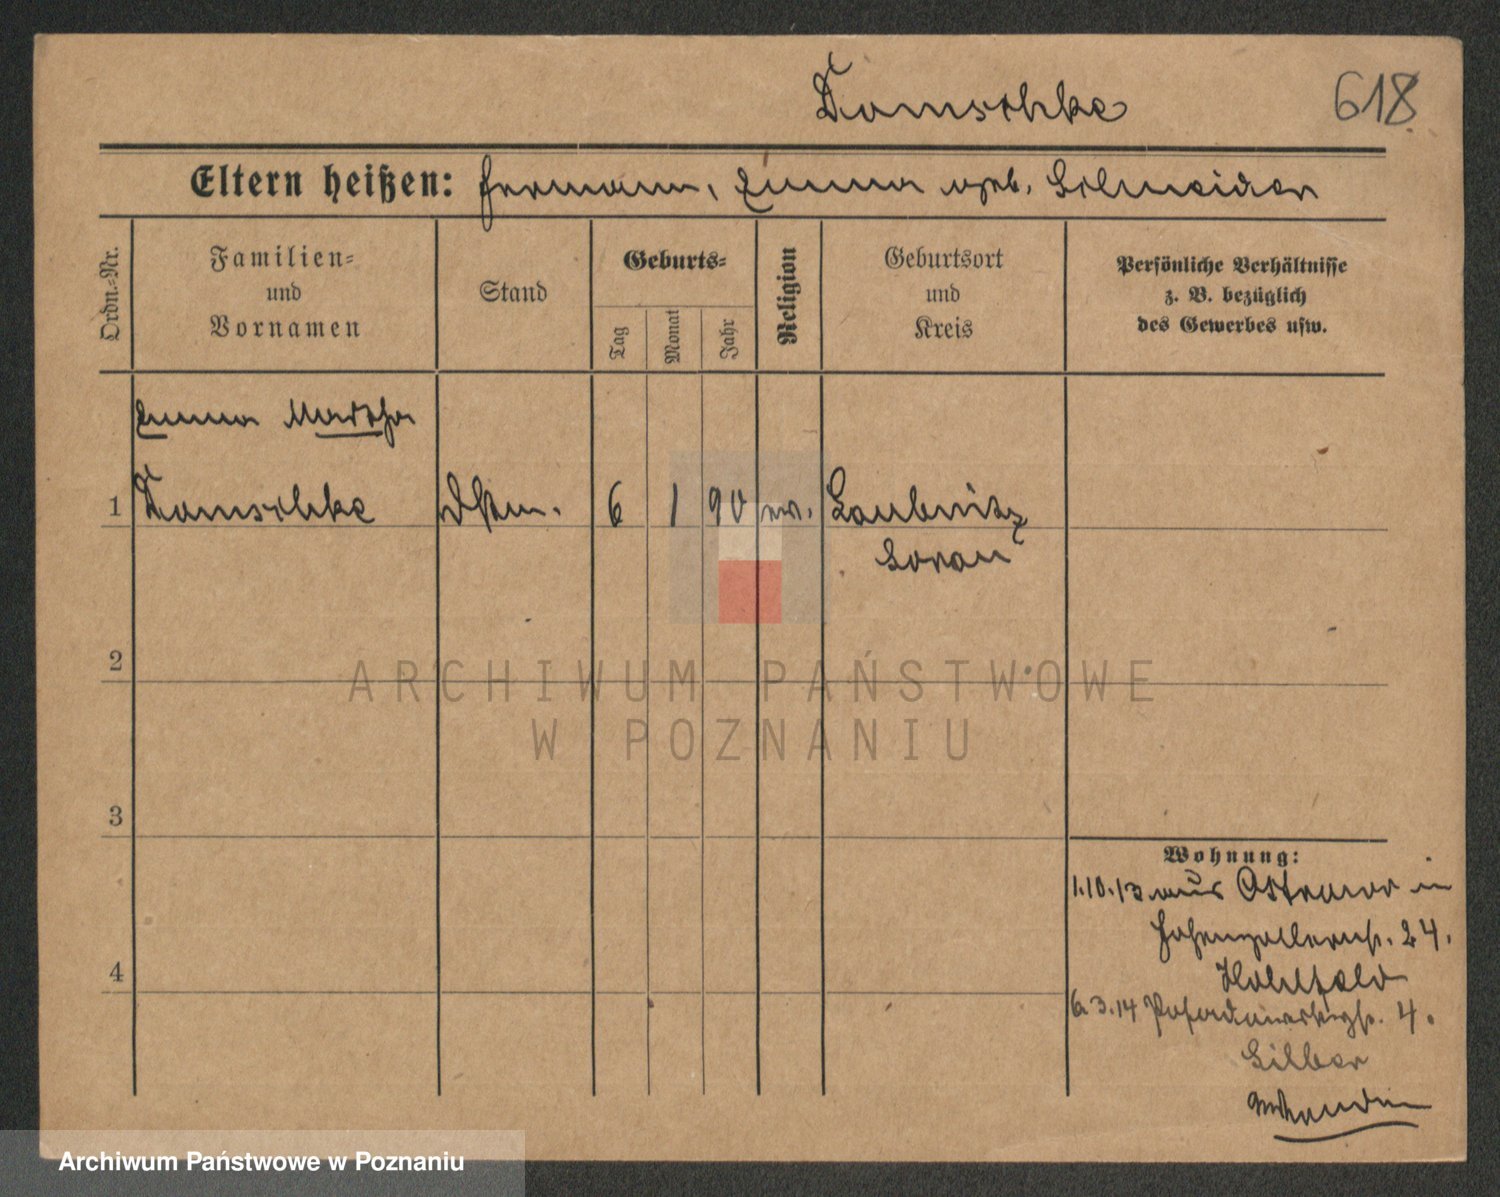 Tomschke 618
Eltern heißen: Hermann, Emma geb. Schneider
Ordn.-Nr.
Familien-
und
Vornamen
Stand
Geburts-
Tag
Monat
Jahr
Religion
Geburtsort
und
Kreis
Persönliche Verhältnisse
z. B. bezüglich
des Gewerbes usw.
Emma Martha
1 Tomschke 6 1 90 ev. Laubnitz
Sorau
2
ARCHIWUM PAŃSTWOWE
W POZNANIU
3
Wohnung:
1.10.13 aus Ostrowo in
Hohenzollernstr. 24.
4
6.3.14 4.
Silber
Archiwum Państwowe w Poznaniu